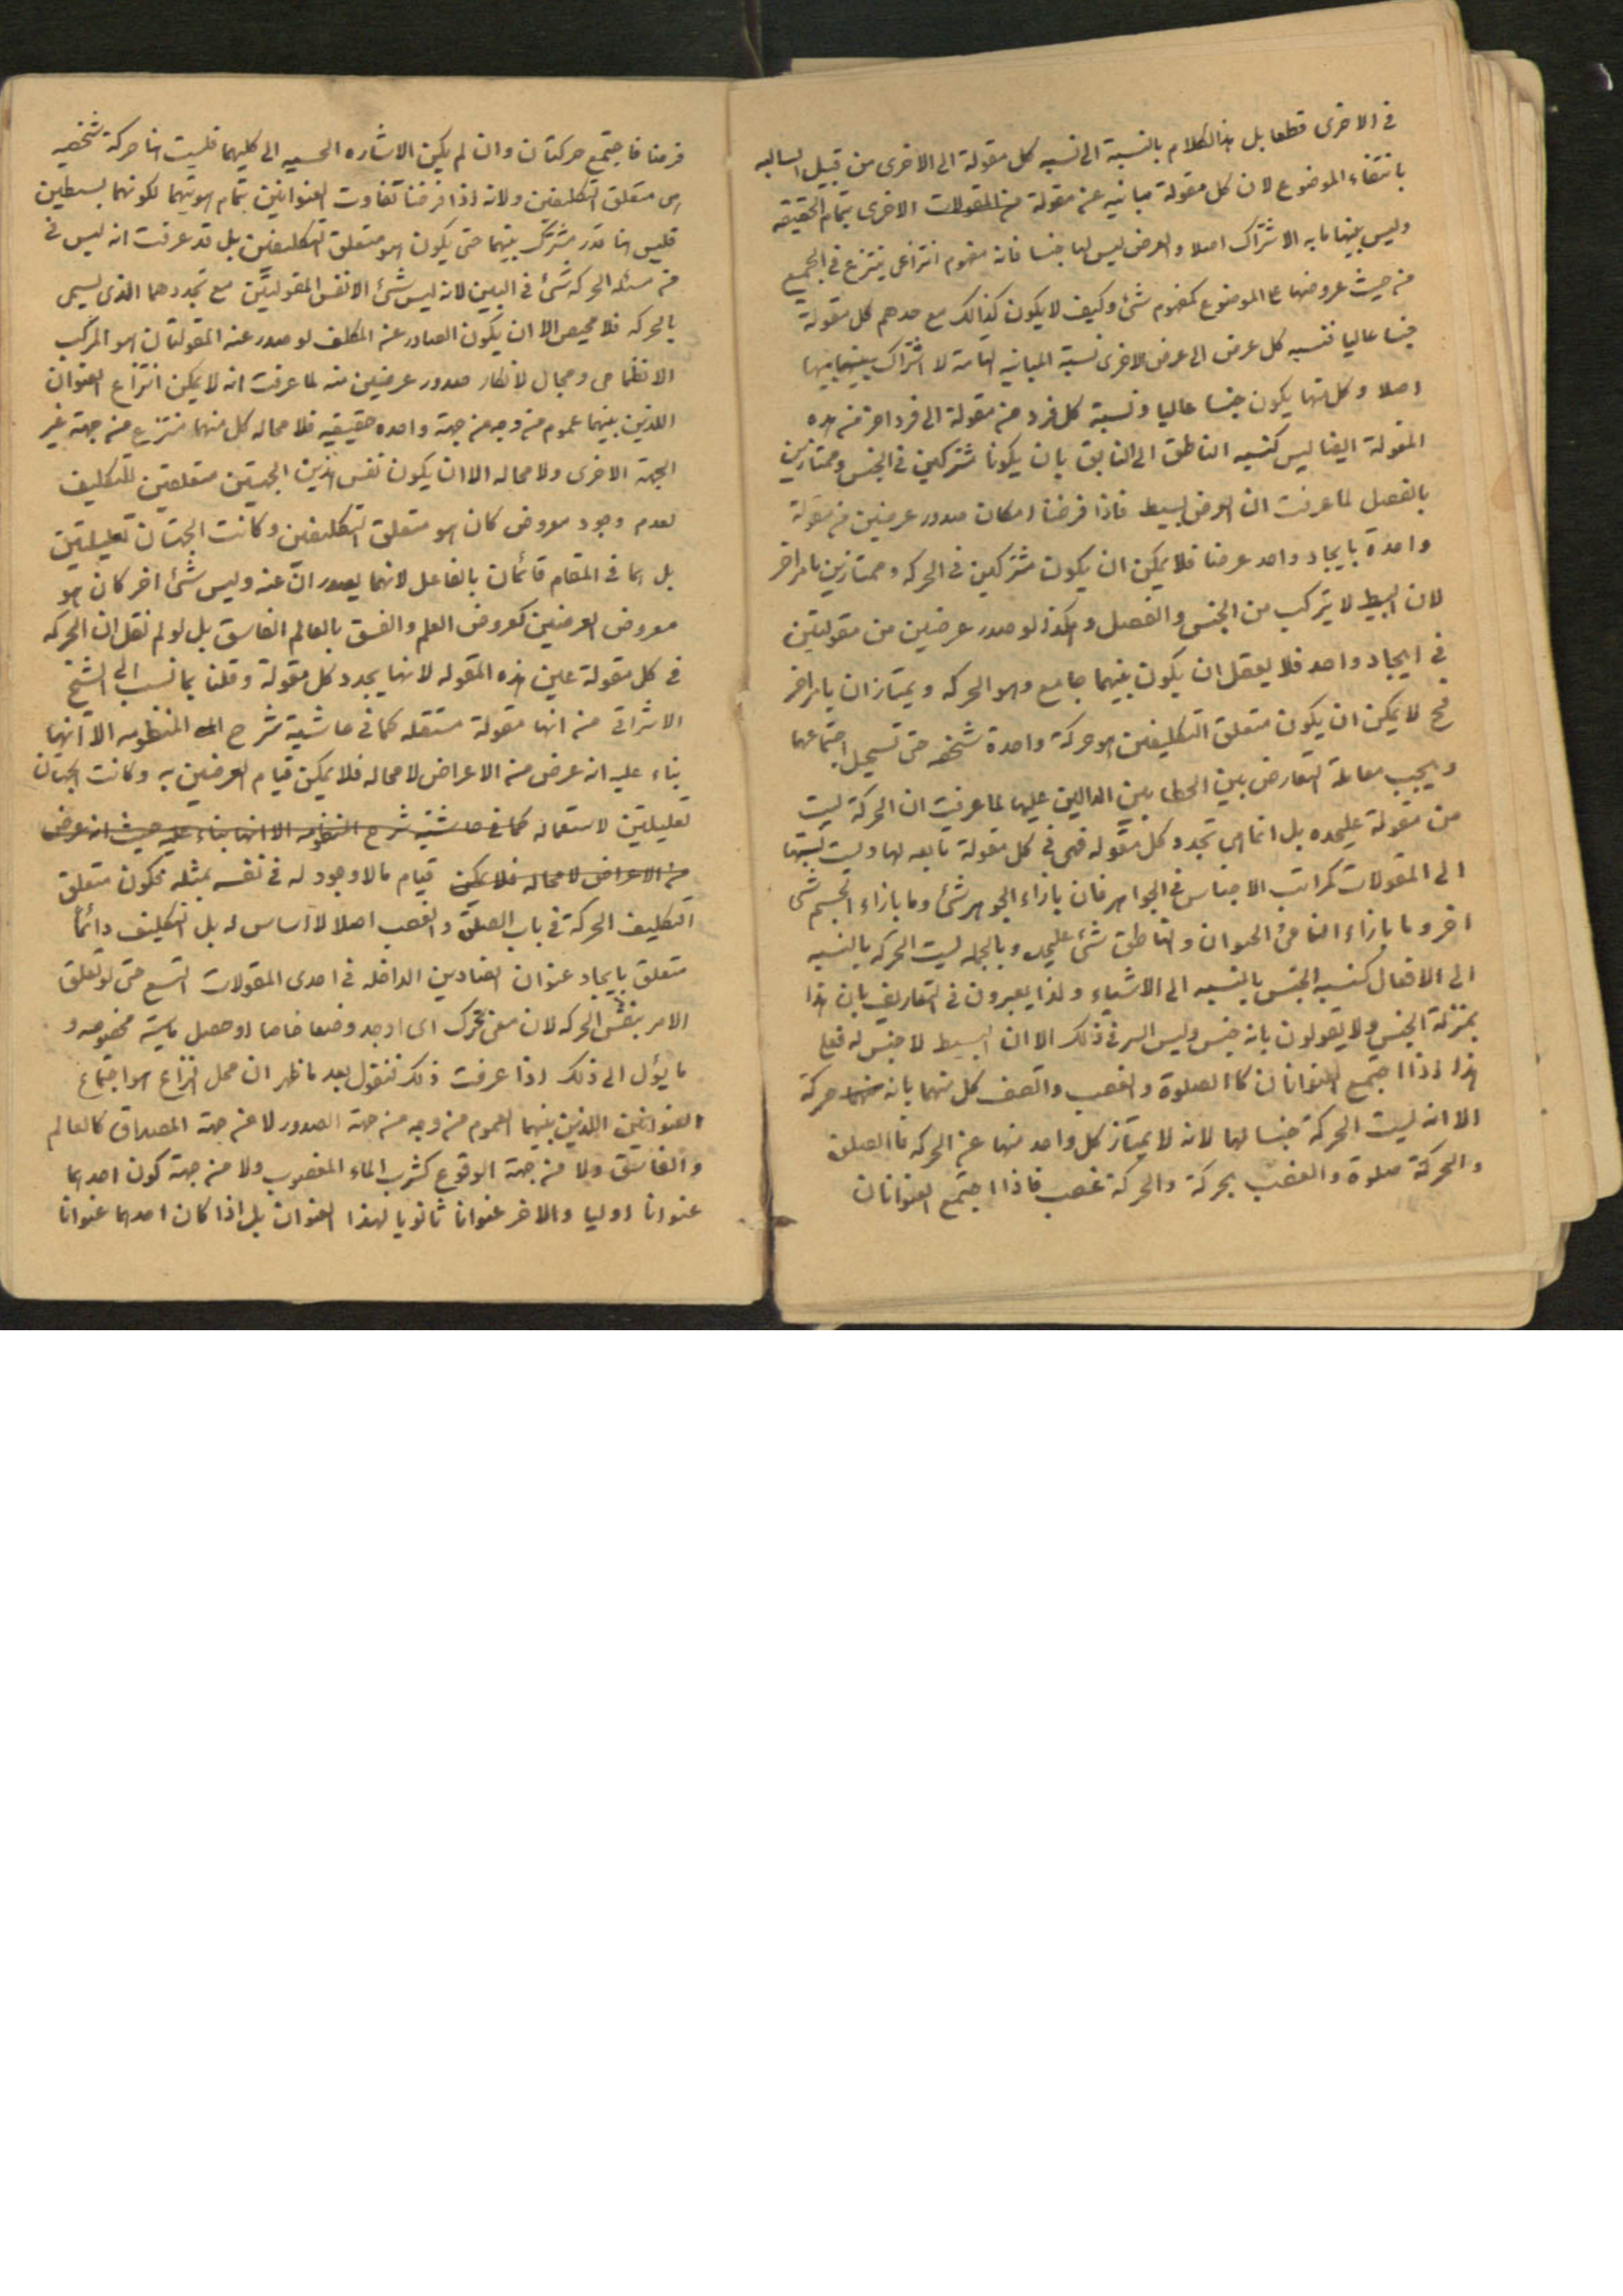 في الاخرى قطعا بل هذا الكلام بالنسبة الى نسبه كل مقولة الى الاخرى من قبيل السالبه
بانتفاء الموضوع لان كل مقولة مباينه عن مقولة من المقولات الاخرى بتمام الحقيقه
وليس بينها ما به الاشتراك اصلا والعرض ليس لها جنسا فانه مفهوم انتزاعى ينتزع في الجميع
من حيث عروضها على الموضوع كمفهوم شئ وكيف لا يكون كذالك مع عدهم كل مقولة
جنسا عاليا فنسبه كل عرض الى عرض الاخرى نسبة المباينه التامة لا اشتراك بينهما
اصلا وكل منها يكون جنسا عاليا ونسبة كل فرد من مقولة الى فرد اخر من هذه
المقولة ايضا ليس كنسبه الناطق الى الناهق بان يكونا مشتركين في الجنس وممتازين
بالفصل لما عرفت ان العرض بسيط فاذا فرضنا امكان صدور عرضين من مقولة
واحدة بايجاد واحد عرضا فلا يمكن ان يكون مشتركين في الحركه وممتازين بامر اخر
لان البسيط لا يتركب من الجنس والفصل وهكذا لو صدر عرضين من مقولتين
في ايجاد واحد فلا يعقل ان يكون بينهما جامع وهو الحركه ويمتازان بامر اخر
فح لا يمكن ان يكون متعلق التكليفين هو حركة واحدة شخصه حتى تستحيل اجتماعهما
ويجب معاملة التعارض بين الخطابين الدالين عليها لما عرفت ان الحركة ليست
من مقولة عليحده بل انما هى تجدد كل مقوله فهى في كل مقولة تابعه لها وليست نسبتها
الى المقولات كمراتب الاجناس في الجواهر فان بازاء الجوهر شئ وما بازاء الجسم شئ
اخر وما بازاء النامى والحيوان والناطق شئ عليحده وبالجمله ليست الحركه بالنسبه
الى الافعال كنسبه الجنس بالنسبه الى الاشياء ولذا يعبرون في التعاريف بان هذا
بمنزلة الجنس ولا يقولون بانه جنس وليس السر في ذلك الا ان البسيط لا جنس له فعلى
هذا اذا اجتمع العنوانان كالصلوة والغصب واتصف كل منهما بانه حركة
الا انه ليست الحركة جنسا لهما لانه لا يمتاز كل واحد منها عن الحركه فالصلوة
والحركة صلوة والغصب بحركة والحركة غصب فاذا اجتمع العنوانان
فرضنا فاجتمع حركتان وان لم يكن الاشاره الحسيه الى كليهما فليست هنا حركة شخصيه
هى متعلق التكليفين ولانه اذا فرضنا تفاوت العنوانين بتمام هويتهما لكونهما بسيطين
فليس هنا قدر مشترك بينهما حتى يكون هو متعلق التكليفين بل قد عرفت انه ليس في
من مسئله الحركه شئ في البين لانه ليس شئ الا نفس المقولتين مع تجددهما الذى يسمى
بالحركه فلا محيص الا ان يكون الصادر عن المكلف لو صدر عنه المقولتان هو المركب
الانظمامى ومجال لانكار صدور عرضين منه لما عرفت انه لا يمكن انتزاع العنوان
اللذين بينهما عموم من وجه من جهة واحده حقيقيه فلا محاله كل منهما منتزع من جهة غير
الجهة الاخرى ولا محاله الا ان يكون نفس هذين الجهتين متعلقتين للتكليف
لعدم وجود معروض كان هو متعلق التكليفين وكانت الجهتان تعليليتين
بل هما في المقام قائمان بالفاعل لانهما يصدران عنه وليس شئ اخر كان هو
معروض العرضين كعروض العلم والفسق بالعالم الفاسق بل لو لم نقل ان الحركه
في كل مقولة عين هذه المقوله لانها يجدد كل مقولة وقلنا بما نسب الى الشيخ
الاشراقى من انها مقولة مستقله كما في حاشية شرح المنظومه الا انها
بناء عليه انه عرض من الاعراض لا محاله فلا يمكن قيام العرضين به وكانت الجهتان
تعليليتين لاستحاله كما في حاشيته شرح المنظومه الا انها بناء عليه حيث انه عرض
من الاعراض لا محاله فلا يمكن قيام ما لا وجود له في نفسه بمثله فكون متعلق
التكليف الحركة في باب الصلوة والغصب اصلا لا اساس له بل التكليف دائما
متعلق بايجاد عنوان العنادين الداخله في احدى المقولات التسع حتى لو تعلق
الامر بنفس الحركه لان معنى تحرك اى اوجد وضعا خاصا او حصل ماسية مخصوصه و
ما يؤل الى ذلك اذا عرفت ذلك فنقول بعد ما ظهر ان محل النزاع هو اجتماع
العنوانين اللذين بينهما العموم من وجه من جهة الصدور لا من جهة المصداق كالعالم
والفاسق ولا من جهة الوقوع كشرب الماء المغصوب ولا من جهة كون احدهما
عنوانا اوليا والاخر عنوانا ثانويا لهذا العنوان بل اذا كان احدهما عنوانا